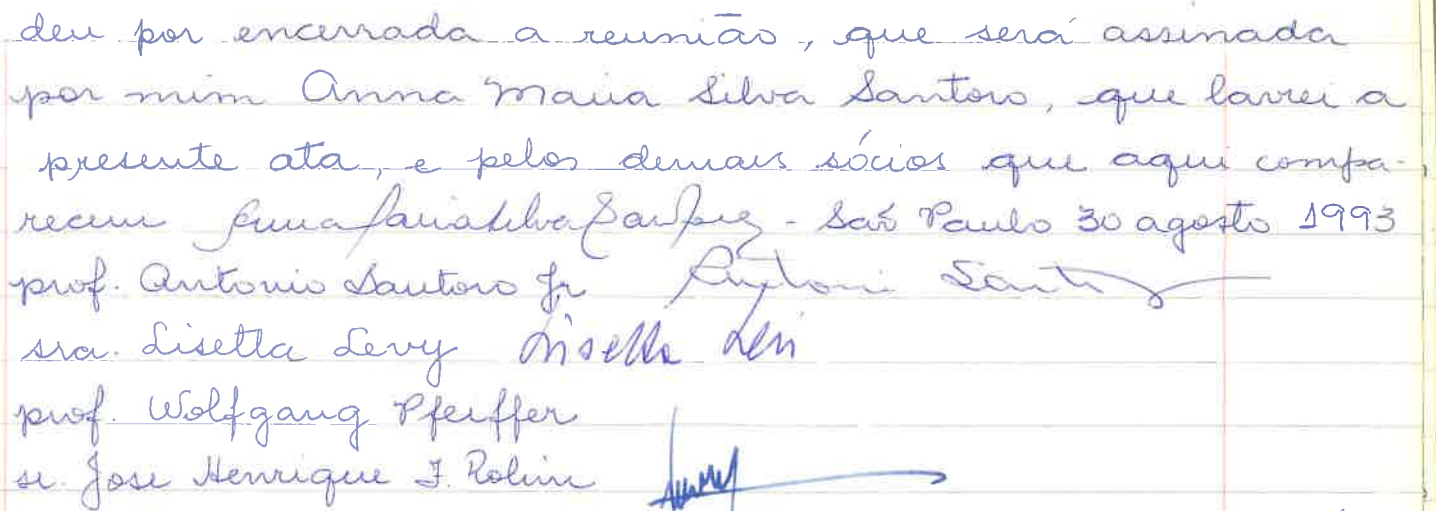 deu por encerrada a reunião, que será assinada
por mim Anna Maria Silva Santoro, que lavrei a
presente ata, e pelos demais sócios que aqui compa-
recem - São Paulo 30 agosto 1993
prof. Antonio Santoro Jr
sra. Lisetta Levy Lisetta Levi
prof. Wolfgang Pfeiffer
sr. Jose Henrique F. Rolim